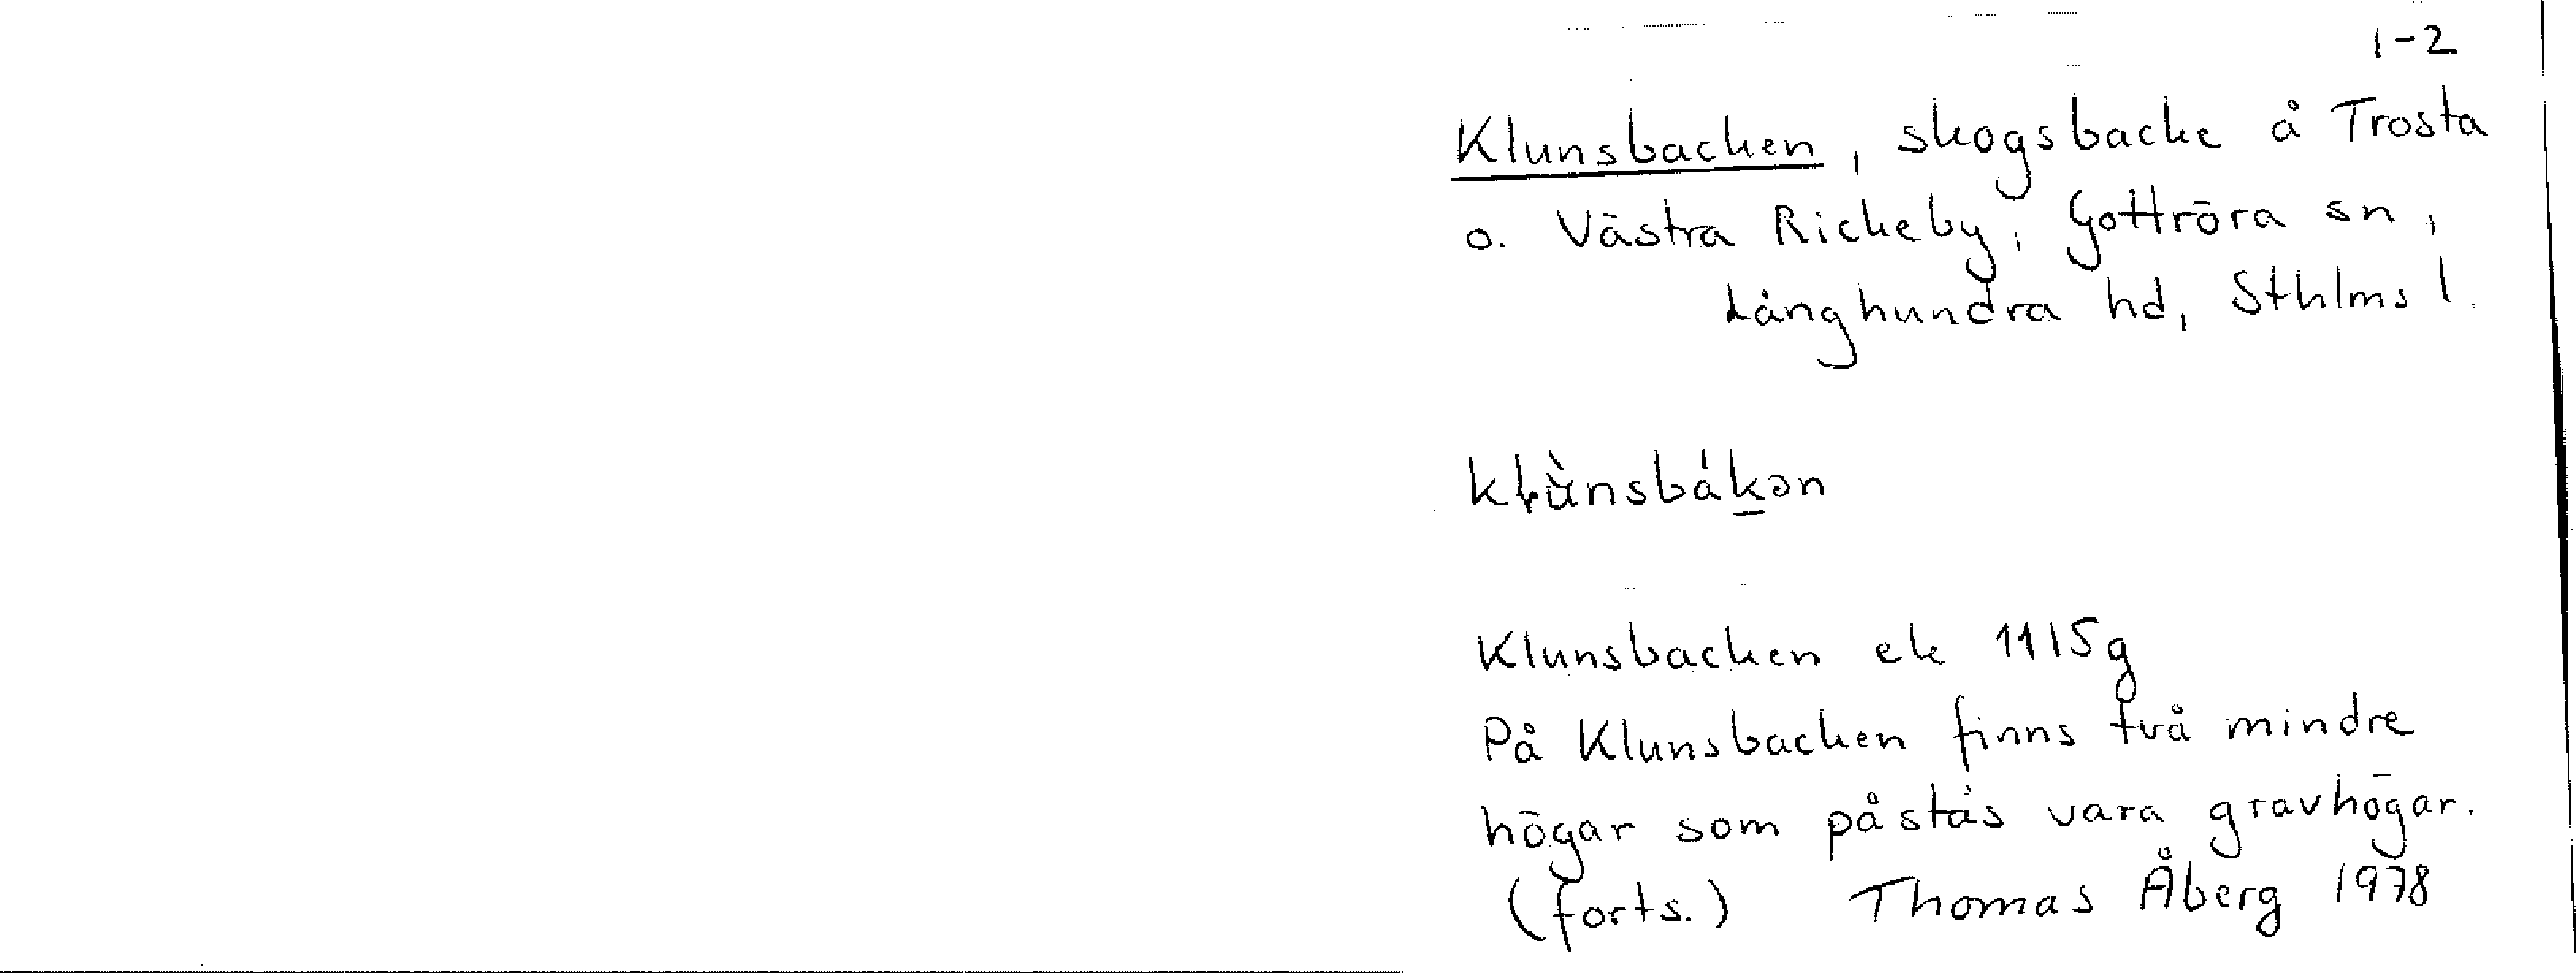 1-2
Klunsbacken, skogsbacke å Trosta
o. Västra Rickeby, Gottröra sn,
Långhundra hd, Sthlms l.
Klunsbacken ek 1115g
På Klunsbacken finns två mindre
högar som påstås vara gravhögar.
(forts.) Thomas Åberg 1978